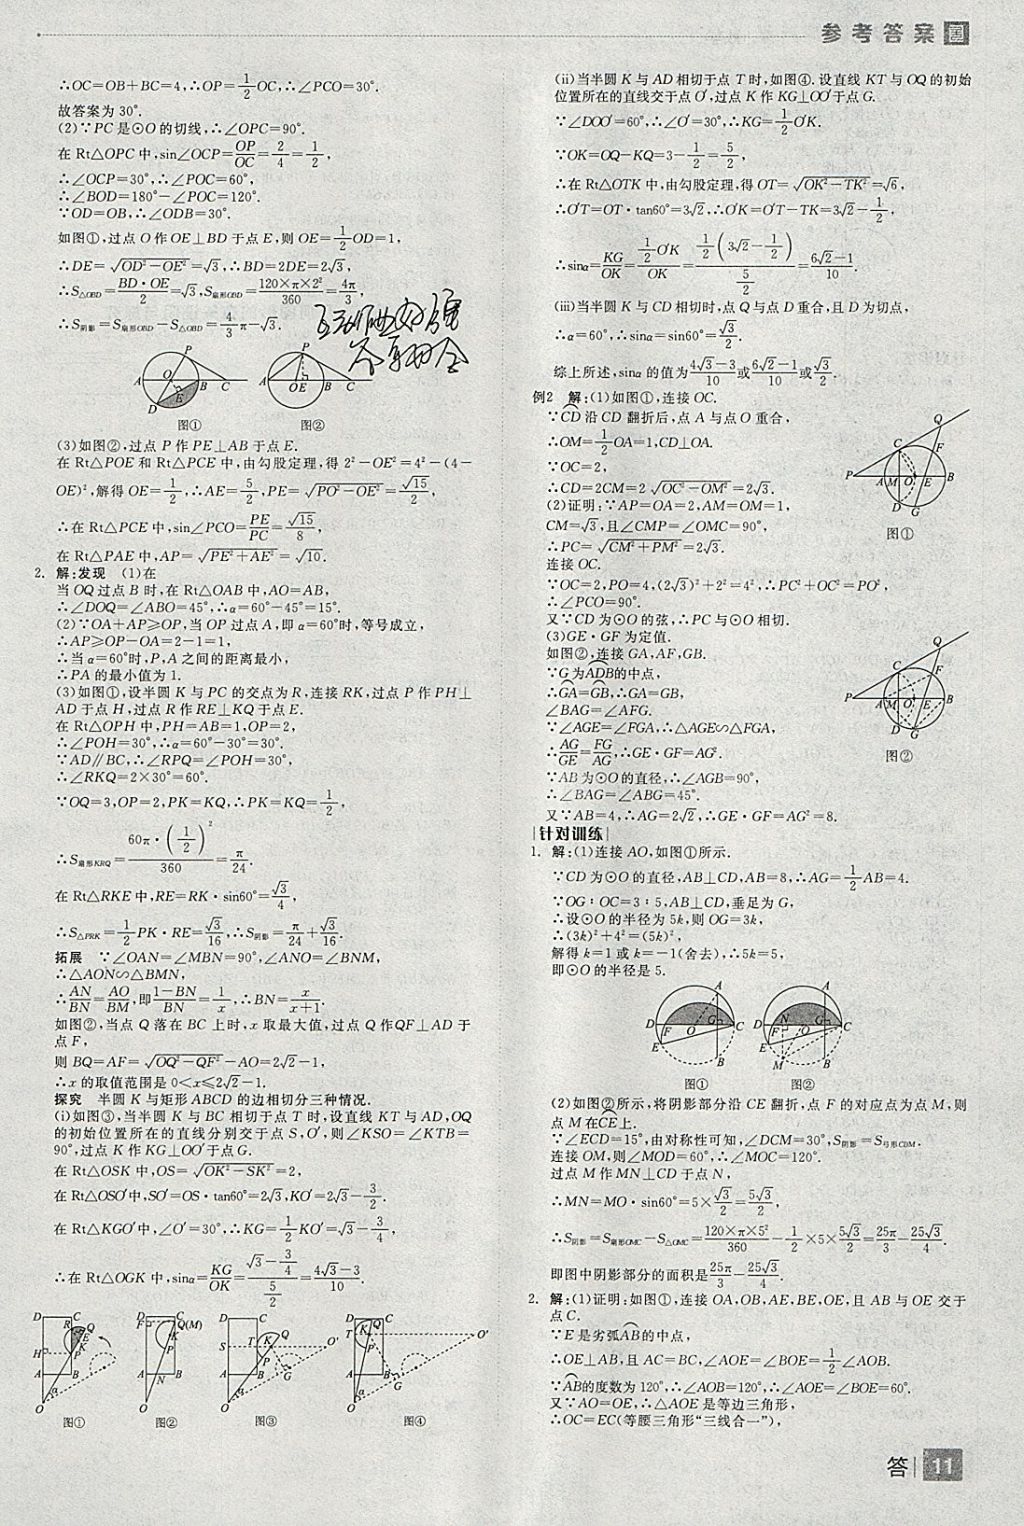 参考答案
∴OC=OB+BC=4,∴OP=1/2OC,∴∠PCO=30°.
故答案为30°.
(2)∵PC是⊙O的切线,∴∠OPC=90°.
在Rt△OPC中,sin∠OCP=OP/OC=2/4=1/2,
∴∠OCP=30°,∴∠POC=60°,
∴∠BOD=180°-∠POC=120°.
∵OD=OB,∴∠ODB=30°.
如图①,过点O作OE⊥BD于点E,则OE=1/2OD=1,
∴DE=√(OD²-OE²)=√3,∴BD=2DE=2√3,
∴S△OBD=BD·OE/2=√3,S扇形OBD=120×π×2²/360=4π/3,
∴S阴影=S扇形OBD-S△OBD=4/3π-√3.
P A O B C E D
图①
P A O E B C
图②
(3)如图②,过点P作PE⊥AB于点E.
在Rt△POE和Rt△PCE中,由勾股定理,得2²-OE²=4²-(4-
OE)²,解得OE=1/2,∴AE=5/2,PE=√(PO²-OE²)=√15/2,
∴在Rt△PCE中,sin∠PCO=PE/PC=√15/8,
在Rt△PAE中,AP=√(PE²+AE²)=√10.
2. 解:发现 (1)在
当OQ过点B时,在Rt△OAB中,AO=AB,
∴∠DOQ=∠ABO=45°,∴α=60°-45°=15°.
(2)∵OA+AP≥OP,当OP过点A,即α=60°时,等号成立,
∴AP≥OP-OA=2-1=1,
∴当α=60°时,P,A之间的距离最小,
∴PA的最小值为1.
(3)如图①,设半圆K与PC的交点为R,连接RK,过点P作PH⊥
AD于点H,过点R作RE⊥KQ于点E.
在Rt△OPH中,PH=AB=1,OP=2,
∴∠POH=30°,∴α=60°-30°=30°.
∵AD∥BC,∴∠RPQ=∠POH=30°,
∴∠RKQ=2×30°=60°.
∵OQ=3,OP=2,PK=KQ,∴PK=KQ=1/2,
∴S扇形KRQ=60π·(1/2)²/360=π/24.
在Rt△RKE中,RE=RK·sin60°=√3/4,
∴S△PRK=1/2PK·RE=√3/16,∴S阴影=π/24+√3/16.
拓展 ∵∠OAN=∠MBN=90°,∠ANO=∠BNM,
∴△AON∽△BMN,
∴AN/BN=AO/BM,即(1-BN)/BN=1/x,∴BN=x/(x+1).
如图②,当点Q落在BC上时,x取最大值,过点Q作QF⊥AD于
点F,
则BQ=AF=√(OQ²-QF²)-AO=2√2-1,
∴x的取值范围是0<x≤2√2-1.
探究 半圆K与矩形ABCD的边相切分三种情况.
(i)如图③,当半圆K与BC相切于点T时,设直线KT与AD,OQ
的初始位置所在的直线分别交于点S,O′,则∠KSO=∠KTB=
90°,过点K作KG⊥OO′于点G.
在Rt△OSK中,OS=√(OK²-SK²)=2,
在Rt△OSO′中,SO′=OS·tan60°=2√3,KO′=2√3-3/2.
在Rt△KGO′中,∠O′=30°,∴KG=1/2KO′=√3-3/4,
∴在Rt△OGK中,sinα=KG/OK=(√3-3/4)/(5/2)=(4√3-3)/10.
图①
图②
图③
图④
(ii)当半圆K与AD相切于点T时,如图④.设直线KT与OQ的初始
位置所在的直线交于点O′,过点K作KG⊥OO′于点G.
∵∠DOO′=60°,∴∠O′=30°,∴KG=1/2O′K.
∵OK=OQ-KQ=3-1/2=5/2,
∴在Rt△OTK中,由勾股定理,得OT=√(OK²-TK²)=√6,
∴O′T=OT·tan60°=3√2,∴O′K=O′T-TK=3√2-1/2,
∴sinα=KG/OK=(1/2O′K)/OK=(1/2(3√2-1/2))/(5/2)=(6√2-1)/10.
(iii)当半圆K与CD相切时,点Q与点D重合,且D为切点,
∴α=60°,∴sinα=sin60°=√3/2.
综上所述,sinα的值为(4√3-3)/10或(6√2-1)/10或√3/2.
例2 解:(1)如图①,连接OC.
∵CD沿CD翻折后,点A与点O重合,
∴OM=1/2OA=1,CD⊥OA.
∵OC=2,
∴CD=2CM=2√(OC²-OM²)=2√3.
(2)证明:∵AP=OA=2,AM=OM=1,
CM=√3,且∠CMP=∠OMC=90°,
∴PC=√(CM²+PM²)=2√3.
连接OC.
∵OC=2,PO=4,(2√3)²+2²=4²,∴PC²+OC²=PO²,
∴∠PCO=90°.
又∵CD为⊙O的弦,∴PC与⊙O相切.
(3)GE·GF为定值.
如图②,连接GA,AF,GB.
∵G为ADB的中点,
∴GA=GB,∴GA=GB,
∠BAG=∠AFG.
∵∠AGE=∠FGA,∴△AGE∽△FGA,
∴AG/GE=FG/AG,∴GE·GF=AG².
∵AB为⊙O的直径,∴∠AGB=90°,
∴∠BAG=∠ABG=45°.
又∵AB=4,∴AG=2√2,∴GE·GF=AG²=8.
图①
图②
针对训练
1. 解:(1)连接AO,如图①所示.
∵CD为⊙O的直径,AB⊥CD,AB=8,∴AG=1/2AB=4.
∵OG∶OC=3∶5,AB⊥CD,垂足为G,
∴设⊙O的半径为5k,则OG=3k,
∴(3k)²+4²=(5k)²,
解得k=1或k=-1(舍去),∴5k=5,
即⊙O的半径是5.
图①
图②
(2)如图②所示,将阴影部分沿CE翻折,点F的对应点为点M,则
点M在CE上.
∵∠ECD=15°,由对称性可知,∠DCM=30°,S阴影=S弓形CDM.
连接OM,则∠MOD=60°,∴∠MOC=120°.
过点M作MN⊥CD于点N,
∴MN=MO·sin60°=5×√3/2=5√3/2,
∴S阴影=S扇形OMC-S△OMC=120×π×5²/360-1/2×5×5√3/2=25π/3-25√3/4.
即图中阴影部分的面积是25π/3-25√3/4.
2. 解:(1)证明:如图①,连接OA,OB,AE,BE,OE,且AB与OE交于
点C.
∵E是劣弧AB的中点,
∴OE⊥AB,且AC=BC,∠AOE=∠BOE=1/2∠AOB.
∵AB的度数为120°,∴∠AOB=120°,∴∠AOE=∠BOE=60°.
又∵AO=OE,∴△AOE是等边三角形,
∴OC=EC(等腰三角形“三线合一”),
答 11